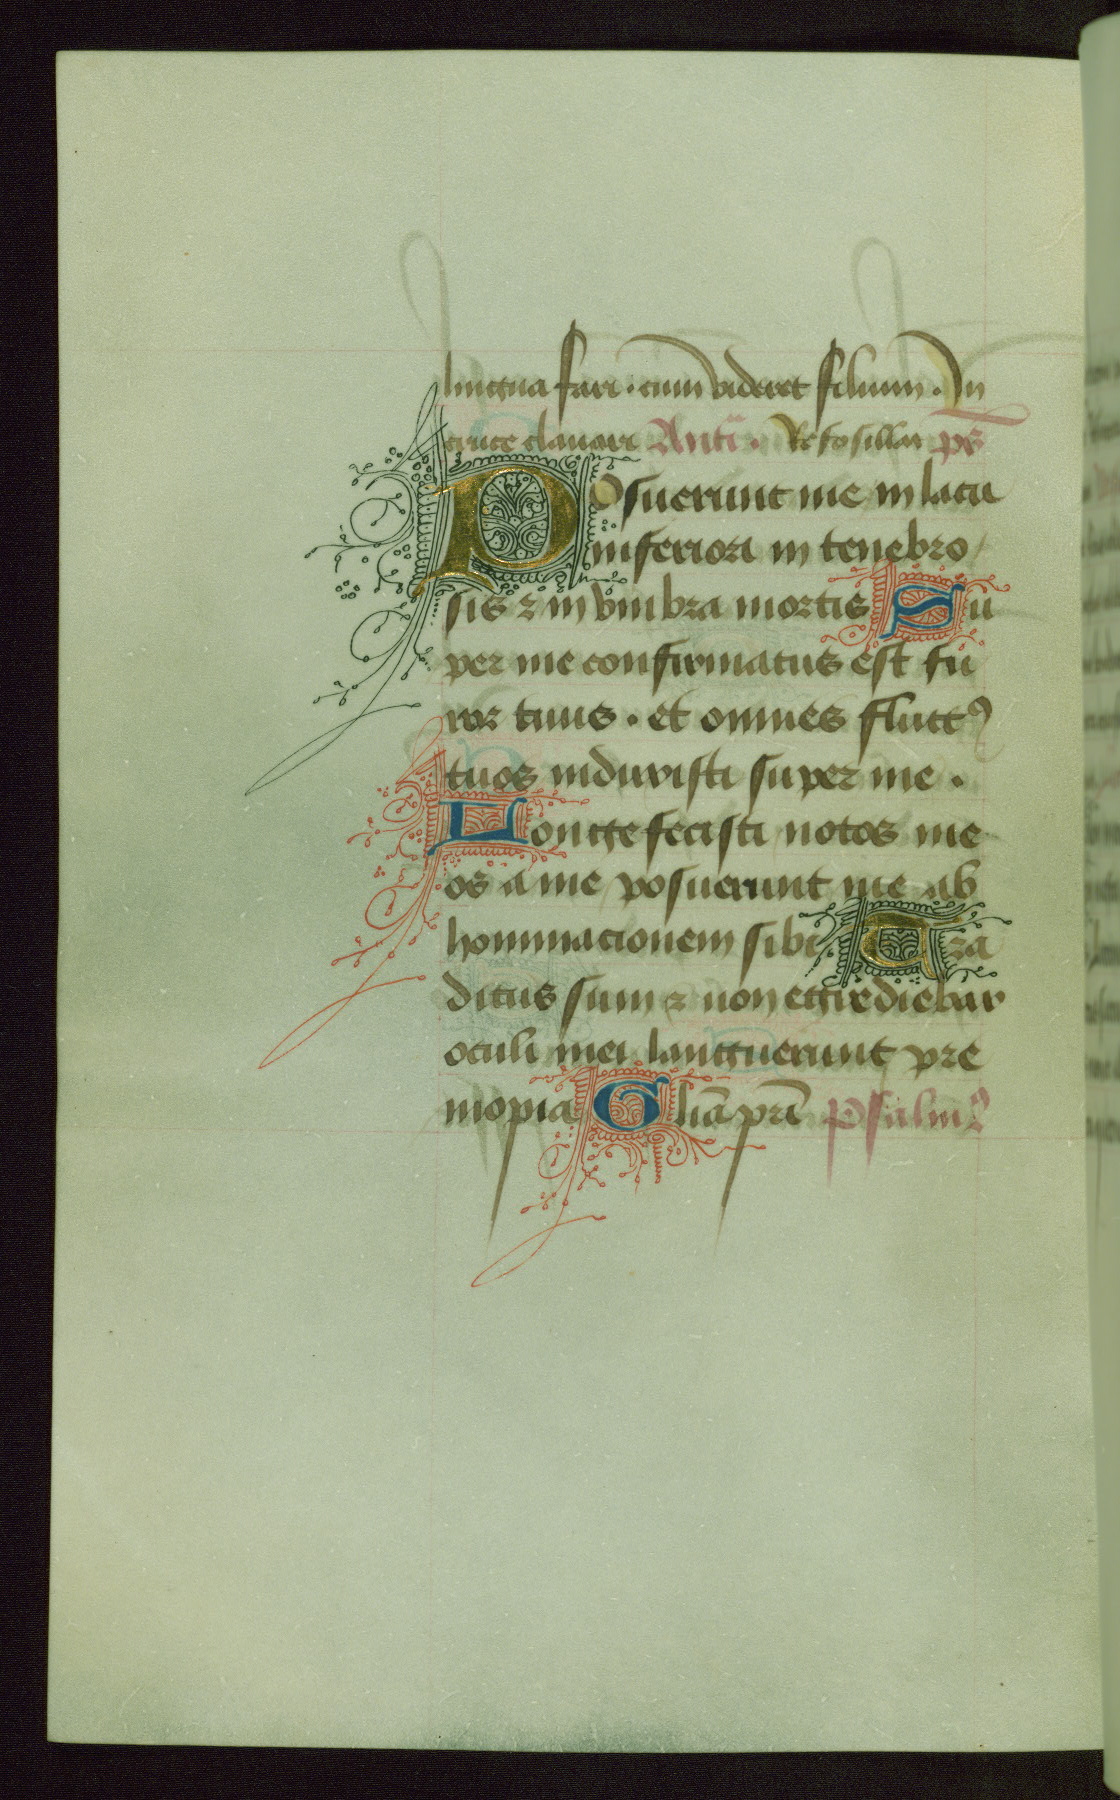 lingua fari · cum videret filium · In
cruce clavari Antā · Refosillar ps̄
Posuerunt me in lacu
inferiori in tenebro
sis ⁊ in vmbra mortis Su
per me confirmatus est fu
ror tuus · et omnes fluctꝯ
tuos induxisti super me ·
Longe fecisti notos me
os a me posuerunt me ab
hominacionem sibi Tra
ditus sum ⁊ non egrediebar
oculi mei languerunt pre
inopia Gliā prī Psalmꝯ